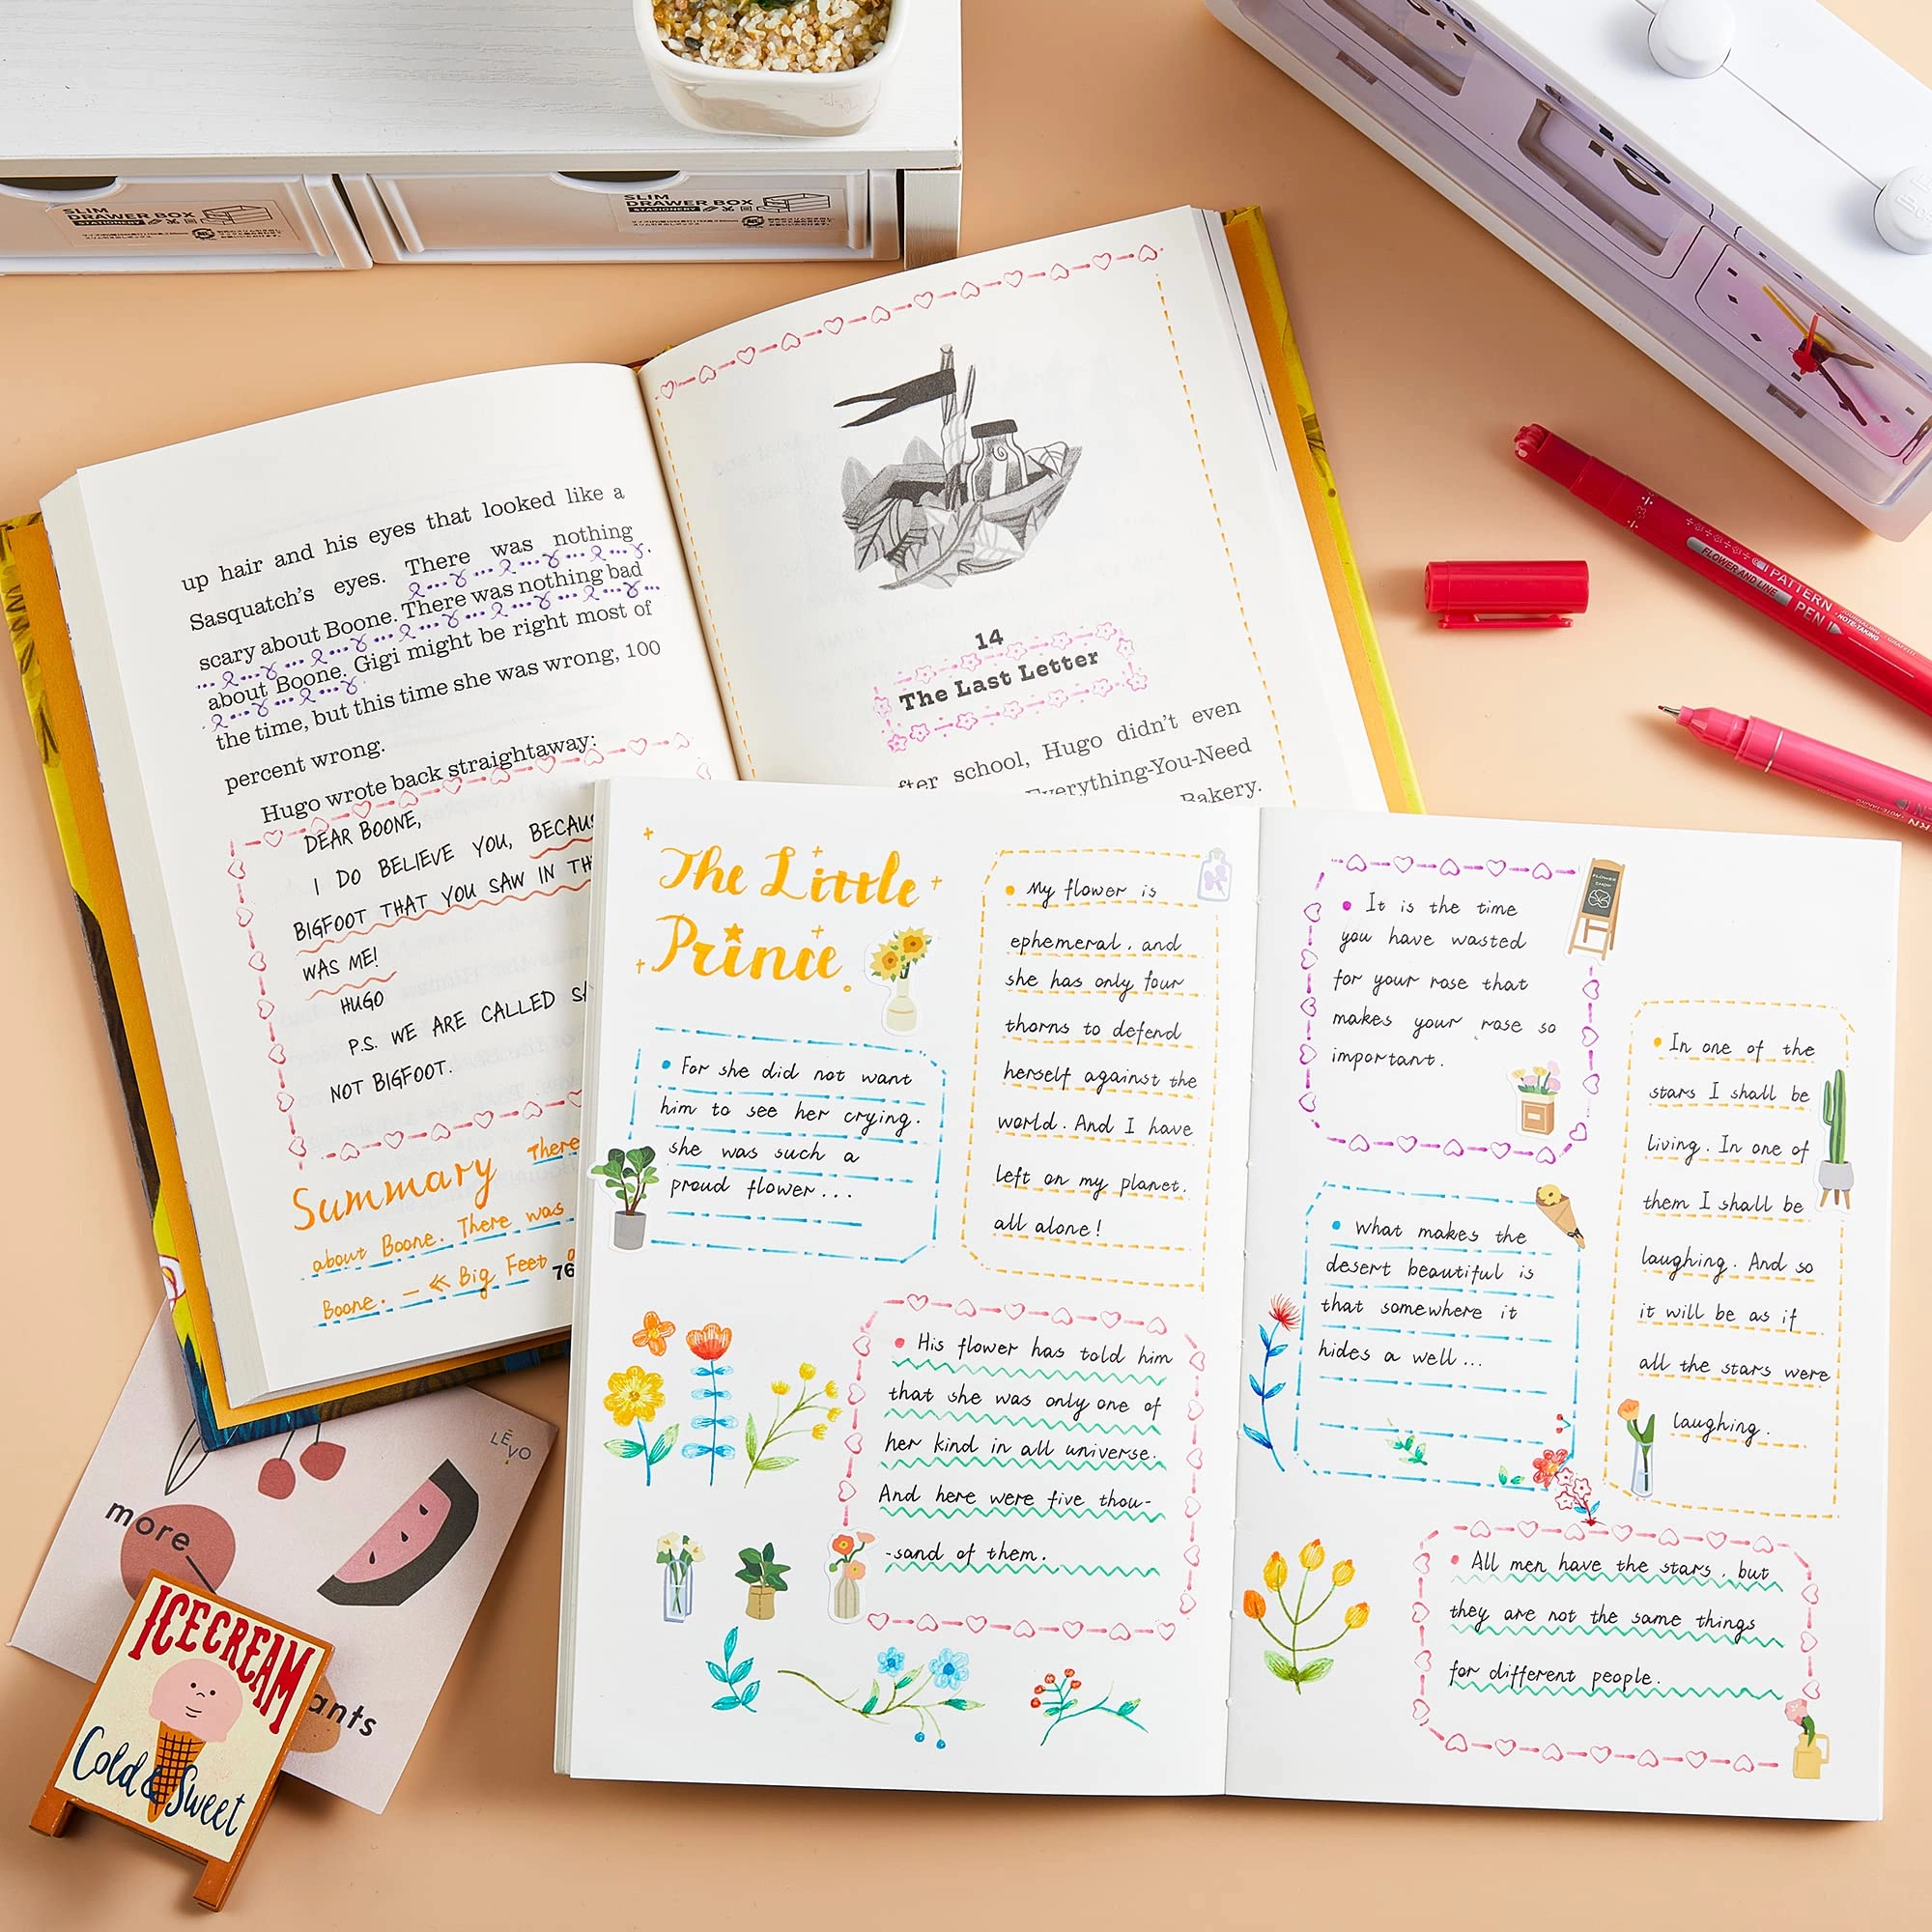 SLIM
DRAWER BOX
STATIONERY
SLIM
DRAWER BOX
STATIONERY
up hair and his eyes that looked like a
Sasquatch's eyes. There was nothing
scary about Boone. There was nothing bad
about Boone. Gigi might be right most of
the time, but this time she was wrong, 100
percent wrong.
Hugo wrote back straightaway:
DEAR BOONE,
I DO BELIEVE YOU,
BIGFOOT THAT YOU SAW IN
WAS ME!
HUGO
P.S. WE ARE CALLED
NOT BIGFOOT.
Summary There
about Boone. There was
Boone. — 《 Big Feet
76
14
The Last Letter
school, Hugo didn't even
Everything-You-Need
Bakery.
PATTERN
PEN
FLOWER AND LINE
NOTE-TAKING
The Little
Prince
• For she did not want
him to see her crying.
she was such a
proud flower...
• My flower is
ephemeral, and
she has only four
thorns to defend
herself against the
world. And I have
left on my planet.
all alone!
• His flower has told him
that she was only one of
her kind in all universe.
And here were five thou-
-sand of them.
• It is the time
you have wasted
for your rose that
makes your rose so
important.
FLOWER
SHOP
• What makes the
desert beautiful is
that somewhere it
hides a well...
• In one of the
stars I shall be
living. In one of
them I shall be
laughing. And so
it will be as if
all the stars were
laughing.
• All men have the stars, but
they are not the same things
for different people.
LĒVO
more
ants
ICECREAM
Cold & Sweet